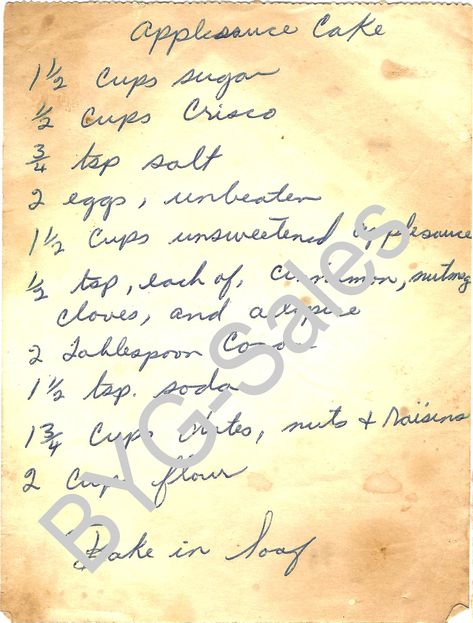 Applesauce Cake
1 1/2 cups sugar
1/2 cups Crisco
3/4 tsp salt
2 eggs, unbeaten
1 1/2 cups unsweetened applesauce
1/2 tsp, each of, cinnamon, nutmeg
cloves, and allspice
2 Tablespoon Cocoa
1 1/2 tsp. soda
1 3/4 cups dates, nuts + raisins
2 cups flour
Bake in loaf
BYG-Sales